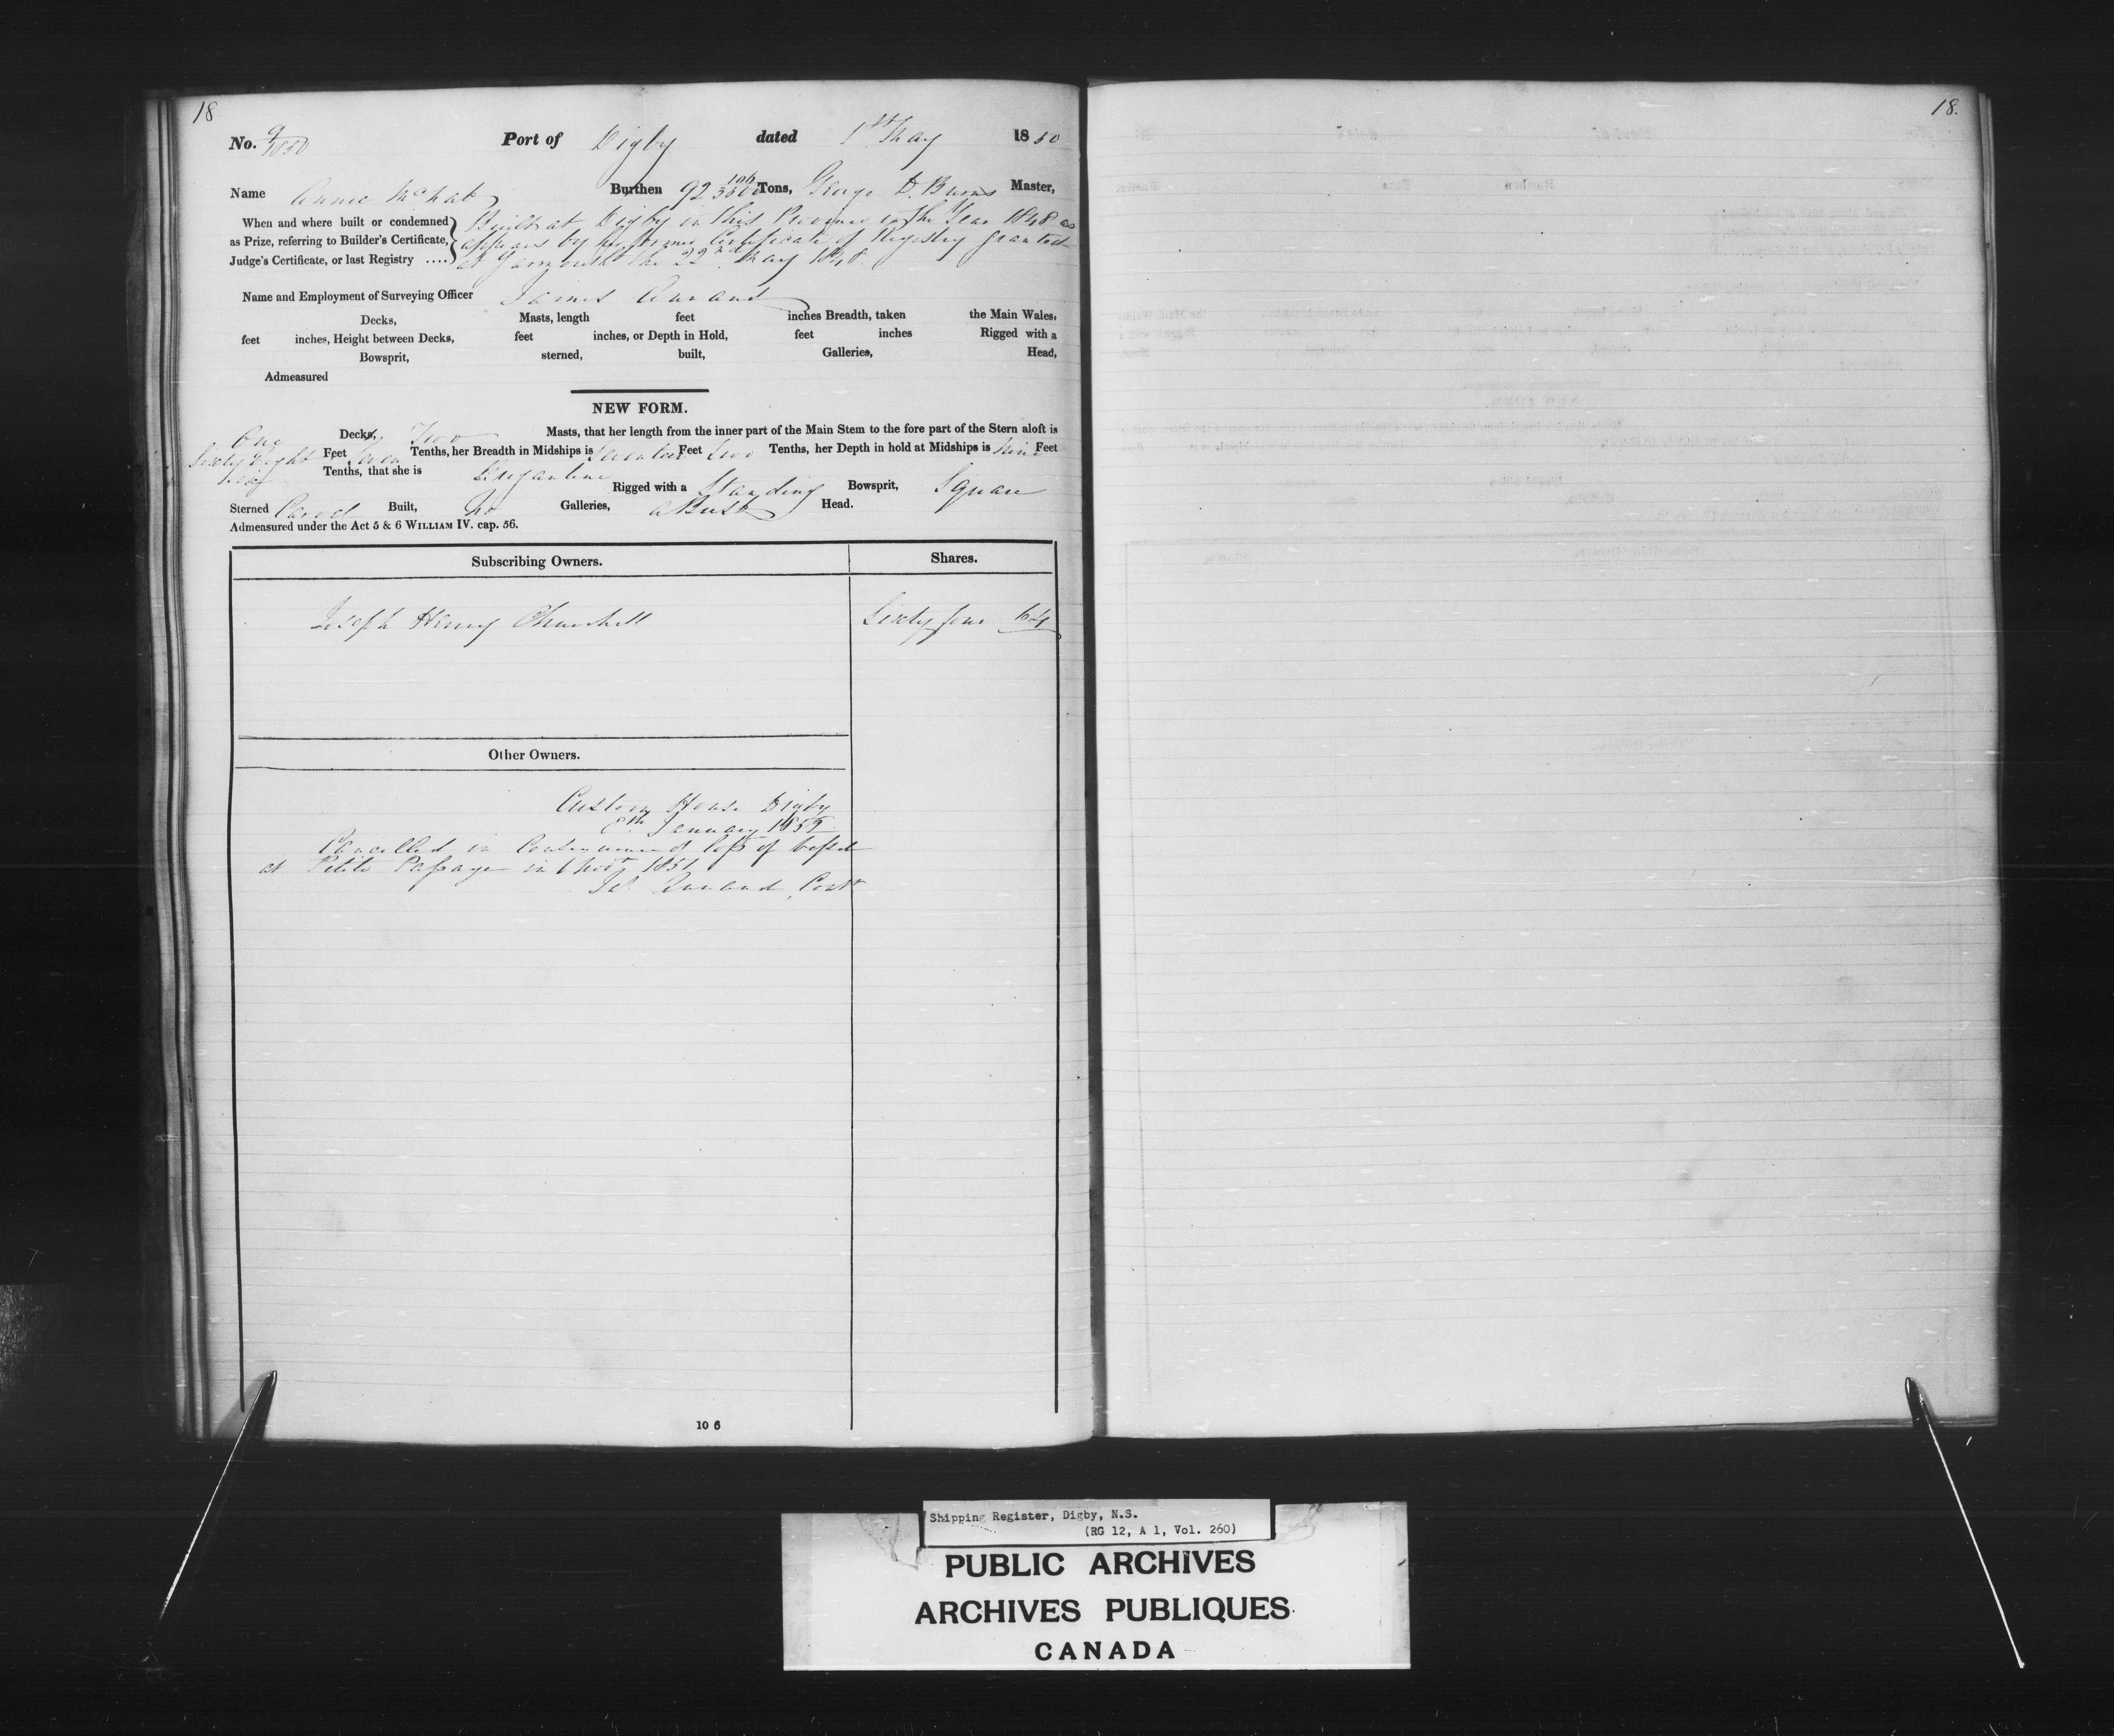 18
18.
No. 9/1850 Port of Digby dated 1st May 1850
Name Annie McNab Burthen 92 106/3500 Tons, George D. Burns Master,
When and where built or condemned Built at Digby in this Province in the Year 1848 as
as Prize, referring to Builder's Certificate, appears by former Certificate of Registry granted
Judge's Certificate, or last Registry .... at Yarmouth the 22nd May 1848.
Name and Employment of Surveying Officer James
Decks, Masts, length feet inches Breadth, taken the Main Wales,
feet inches, Height between Decks, feet inches, or Depth in Hold, feet inches Rigged with a
Bowsprit, sterned, built, Galleries, Head,
Admeasured
NEW FORM.
One Decks, Two Masts, that her length from the inner part of the Main Stem to the fore part of the Stern aloft is
Sixty Eight Feet Seven Tenths, her Breadth in Midships is Seventeen Feet two Tenths, her Depth in hold at Midships is Nine Feet
Tenths, that she is Brigantine Rigged with a Standing Bowsprit, Square
Sterned Carvel Built, No Galleries, a Bust Head.
Admeasured under the Act 5 & 6 WILLIAM IV. cap. 56.
Subscribing Owners. Shares.
Joseph Henry Churchill Sixty four 64
Other Owners.
Custom House Digby
8th January 1852
Cancelled in Consequence of loss of Vessel
at Petite Passage in 1851
Cont
10 6
Shipping Register, Digby, N.S.
(RG 12, A 1, Vol. 260)
PUBLIC ARCHIVES
ARCHIVES PUBLIQUES
CANADA